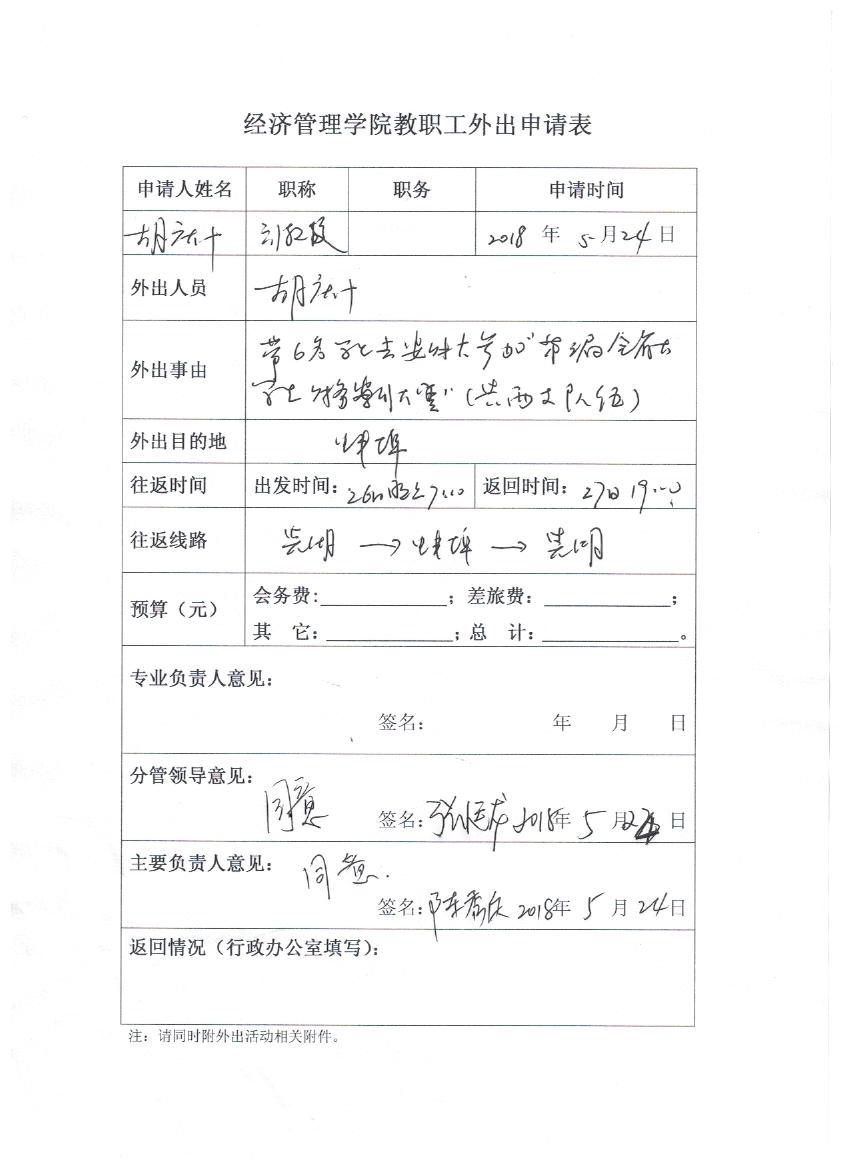 经济管理学院教职工外出申请表
申请人姓名 职称 职务 申请时间
胡 副教授 2018 年 5 月 24 日
外出人员 胡
外出事由 带6名学生去安财大参加"第 届全省大
学生 大赛"(共两支队伍)
外出目的地 蚌埠
往返时间 出发时间: 26日 7:00 返回时间: 27日 19:00
往返线路 芜湖 → 蚌埠 → 芜湖
预算（元） 会务费: ； 差旅费: ；
其 它: ； 总 计: 。
专业负责人意见:
签名: 年 月 日
分管领导意见: 同意
签名: 2018年 5 月 24 日
主要负责人意见: 同意.
签名: 陈 2018年 5 月 24日
返回情况（行政办公室填写）:
注: 请同时附外出活动相关附件。